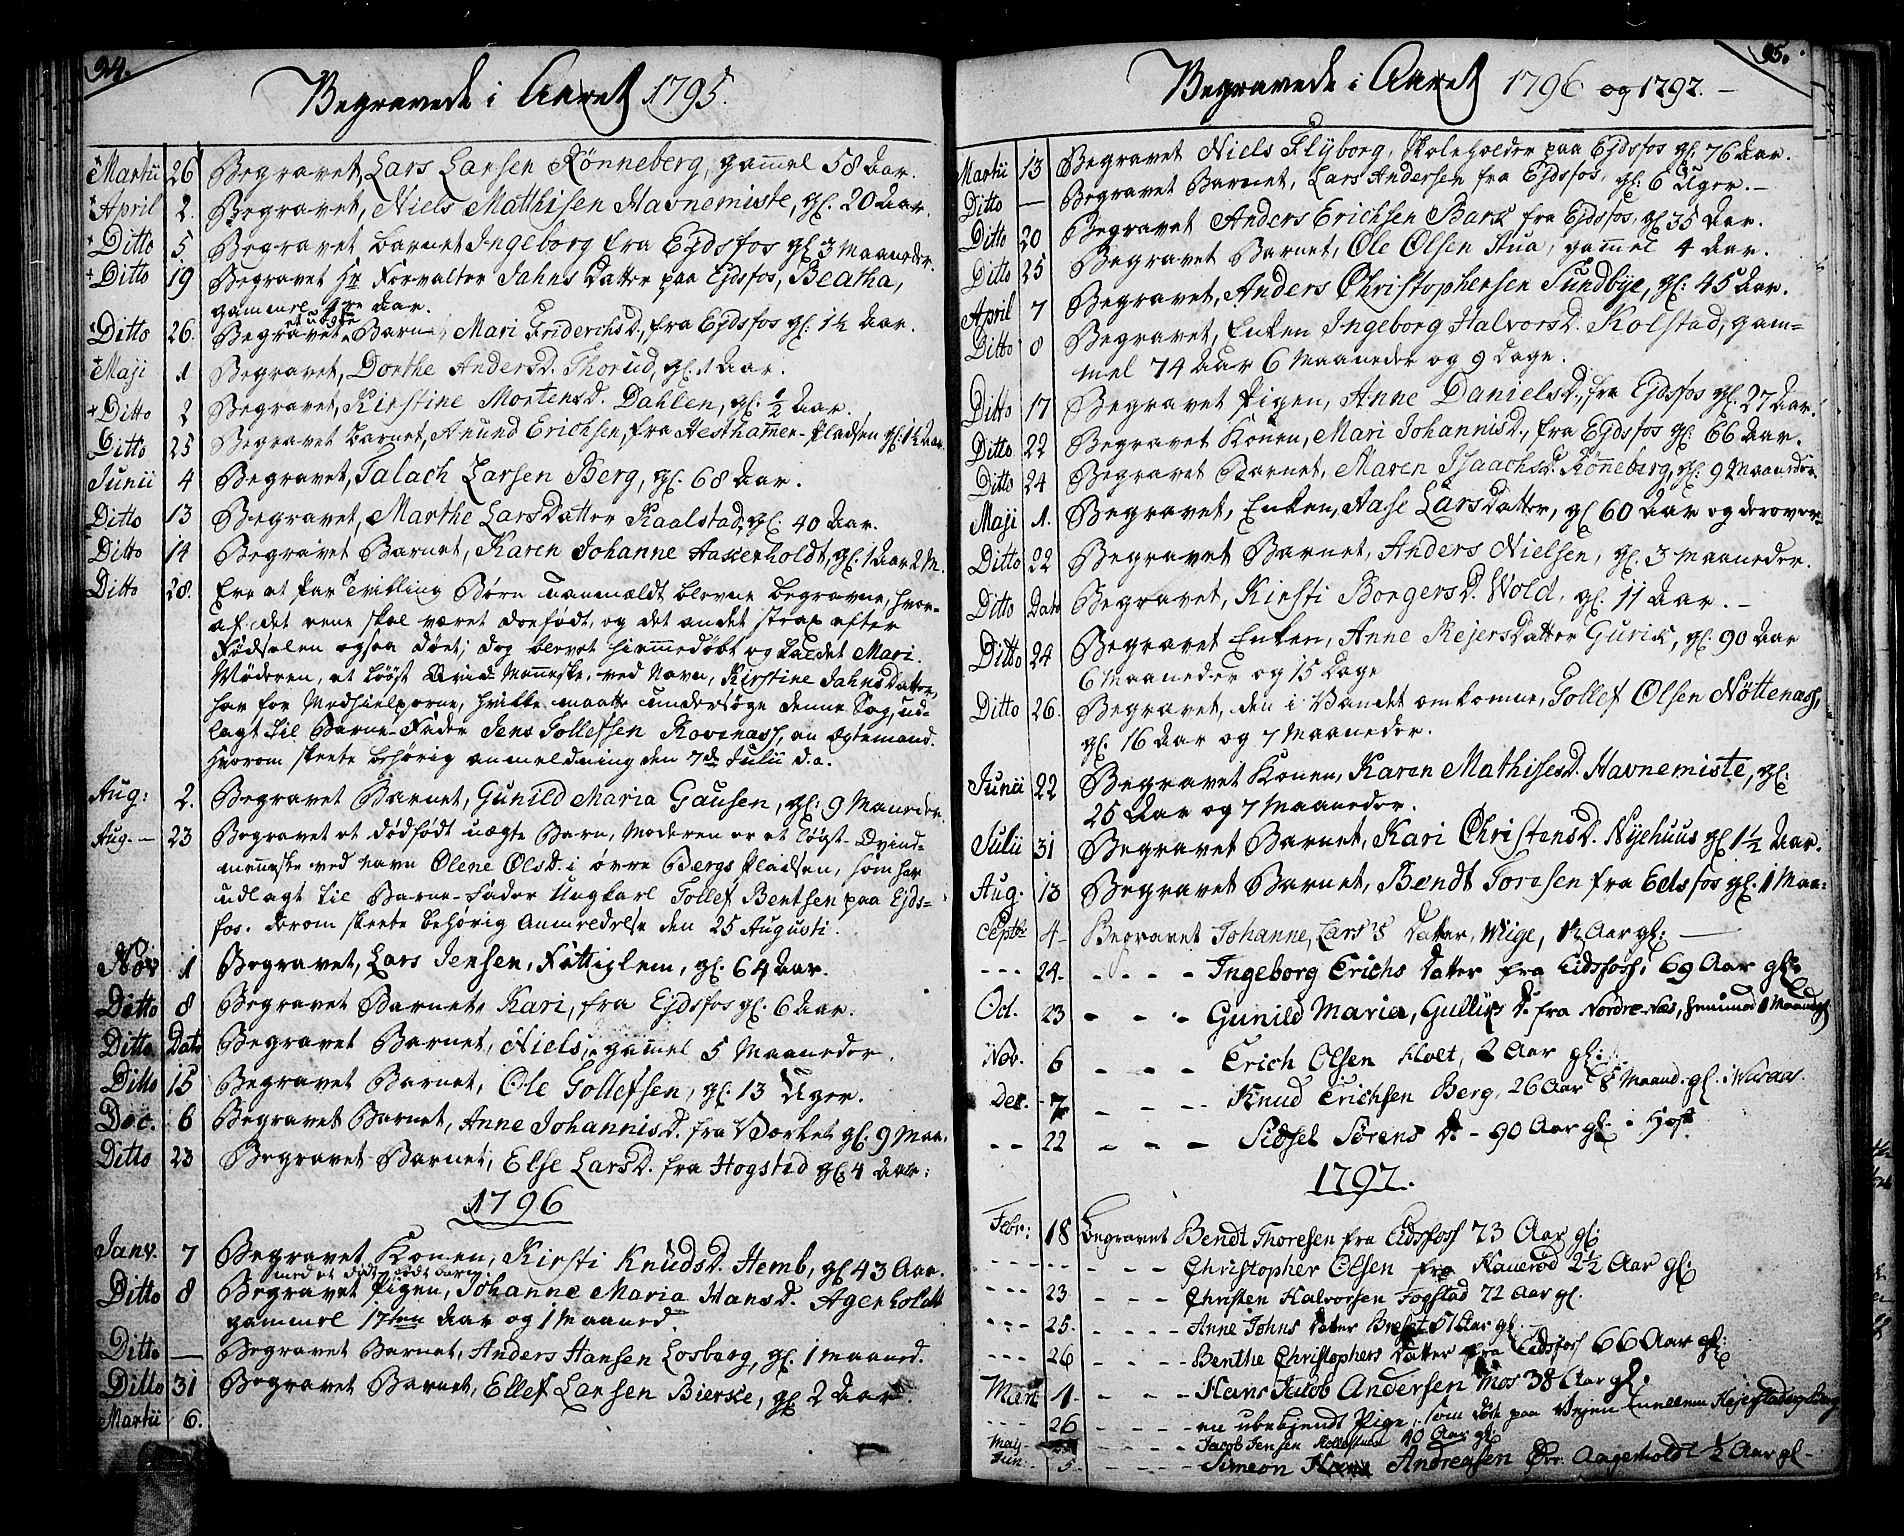 94.
Begravede i Aaret 1795.
Martii 26 Begravet, Lars Larsen Rönneberg, gammel 58 Aar.
April 2. Begravet, Niels Matthisen Havnemiste, gl. 20 Aar.
Ditto 5. Begravet barnet Ingeborg fra Ejdsfos gl. 3 Maaneder.
Ditto 19 Begravet Hr Forvalter Jahns Datter paa Ejdsfos, Beatha,
gammel Aar.
Ditto 26. Begravet et uægte Barn, Mari Friderichsd., fra Ejdsfos gl. 1½ Aar.
Maji 1 Begravet, Dorthe Andersd. Thorud, gl. 1 Aar.
Ditto 2 Begravet, Kirstine Mortensd. Dahlen, gl. ½ Aar.
Ditto 25 Begravet barnet, Anund Erichsen, fra Hesthammer-Pladsen gl. 1½ Aar.
Junii 4 Begravet, Talach Larsen Berg, gl. 68 Aar.
Ditto 13 Begravet, Marthe Lars Datter Kaalstad, gl. 40 Aar.
Ditto 14 Begravet Barnet, Karen Johanne Aakerholdt, gl. 1 Aar 2 M.
Ditto 28. Ere et Par Tvilling Børn uanmældt blevne begravne, hvor-
af det eene skal været dødfødt, og det andet strax efter
Fødselen ogsaa døet; dog blevet hiemmedøbt og kaldet Mari.
Moderen, et løöst Qvind-Menneske, ved Navn, Kirstine Jahns Datter,
har for Medhielperne, hvilke maatte undersøge denne Sag, ud-
lagt til Barne-Fader Jens Tollefsen Kovenass, en Egtemand.
Hvorom skeete behörig anmeldning den 7de Julii d.a.
Aug: 2. Begravet Barnet, Gunild Maria Gausen, gl: 9 Maaneder.
Aug. - 23 Begravet et dödfödt uægte Barn, Moderen er et lögst Qvind-
menneske ved navn Olene Olsd. i övre Bergs Pladsen, som har
udlagt til Barne-Fader Ungkarl Tollef Bentsen paa Ejds-
fos. derom skeete behörig Anmeldelse den 25 Augusti.
Nov 1 Begravet, Lars Jensen, Fattiglem, gl. 64 Aar.
Ditto 8 Begravet Barnet, Kari, fra Ejdsfos gl. 6 Aar.
Ditto Dato Begravet Barnet, Niels, gammel 5 Maaneder.
Ditto 15 Begravet Barnet, Ole Tollefsen, gl. 13 Uger.
Dec. 6 Begravet Barnet, Anne Johannisd. fra Værket gl. 9 Maa.
Ditto 23 Begravet Barnet, Else Larsd. fra Hogstad gl. 4 Aar.
1796
Janv. 7 Begravet Konen, Kirsti Knudsd. Hemb, gl. 43 Aar.
med et dødfødt barn
Ditto 8 Begravet Pigen, Johanne Maria Hansd. Agerholdt
gammel 17ten Aar og 1 Maaned.
Ditto — Begravet Barnet, Anders Hansen Losberg, gl. 1 maaned.
Ditto 31 Begravet Barnet, Ellef Larsen Bierke, gl. 2 Aar.
Martii 6.
95.
Begravede i Aaret 1796 og 1797. —
Martii 13 Begravet Niels Flyborg, Skoleholder paa Ejdsfos gl. 76 Aar.
Ditto — Begravet Barnet, Lars Andersen fra Ejdsfos, gl. 6 Uger. —
Ditto 20 Begravet Anders Erichsen Bark fra Ejdsfos, gl. 35 Aar.
Ditto 25 Begravet Barnet, Ole Olsen Sua, gammel 4 Aar.
April 7 Begravet, Anders Christophersen Sundbye, gl: 45 Aar.
Ditto 8 Begravet, Enken Ingeborg Halvorsd. Kolstad, gam-
mel 74 Aar 6 Maaneder og 9 Dage.
Ditto 17 Begravet Pigen, Anne Danielsd., fra Ejdsfos gl. 27 Aar.
Ditto 22 Begravet Konen, Mari Johannisd., fra Ejdsfos gl: 66 Aar.
Ditto 24 Begravet Barnet, Maren Isaachsd. Rønneberg, gl. 9 Maaneder
Maji 1. Begravet, Enken, Aase Lars Datter, gl 60 Aar og derover
Ditto 22 Begravet Barnet, Anders Nielsen, gl. 3 Maaneder.
Ditto Dato Begravet, Kirsti Borgersd. Wold, gl. 11 Aar. —
Ditto 24 Begravet Enken, Anne Rejers Datter Gurik, gl. 90 Aar
6 Maaneder og 15 Dage
Ditto 26. Begravet, den i Vandet omkomne, Tollef Olsen Nöttenass,
gl. 16 Aar og 7 Maaneder.
Junii 22 Begravet Konen, Karen Mathisesd. Havnemiste, gl:
25 Aar og 7 Maaneder.
Julii 31 Begravet Barnet, Kari Christensd. Nyehuus gl 1½ Aar.
Aug: 13 Begravet Barnet, Bendt Toresen fra Edsfos gl. 1 Maa:
Septbr 4 Begravet Johanne, Lars's Datter, Wiige, 12 Aar gl: —
- - - 24. - - - - Ingeborg Erichs Datter fra Eidsfoss, 69 Aar gl:
Oct. 23 - - - Gunild Maria, Gulliks D. fra Nordre-Næs, 1 Maaned gl
Nov. 6 - - - Erich Olsen Holt, 2 Aar gl:
Dec. 7 - - - Knud Erichsen Berg, 26 Aar 8 Maand. gl.
- - 22 - - - Sidsel Sørens D. - 90 Aar gl. i Hof
1797.
Febr: 18 Begravet Bendt Thoresen fra Eidsfoss 73 Aar gl:
- - - - - - - Christopher Olsen fra Hauerød 2½ Aar gl:
- - - 23 - - - - Christen Halvorsen Fogstad 72 Aar gl.
- - - 25. - - - - Anne Johns Datter 51 Aar gl.
- - - 26 - - - - Benthe Christophers Datter fra Eidsfoss 66 Aar gl:
Mart 1 - - - - Hans Jacob Andersen Mos 38 Aar gl.
- - - 26 - - - - en ubekjendt Pige, som døde paa Vejen imellem Berg
Maij - - - - Jacob Jensen 40 Aar gl:
Jun. 5. - - - - Simeon Andreasen Øvr. Aagerholdt ½ Aar gl -